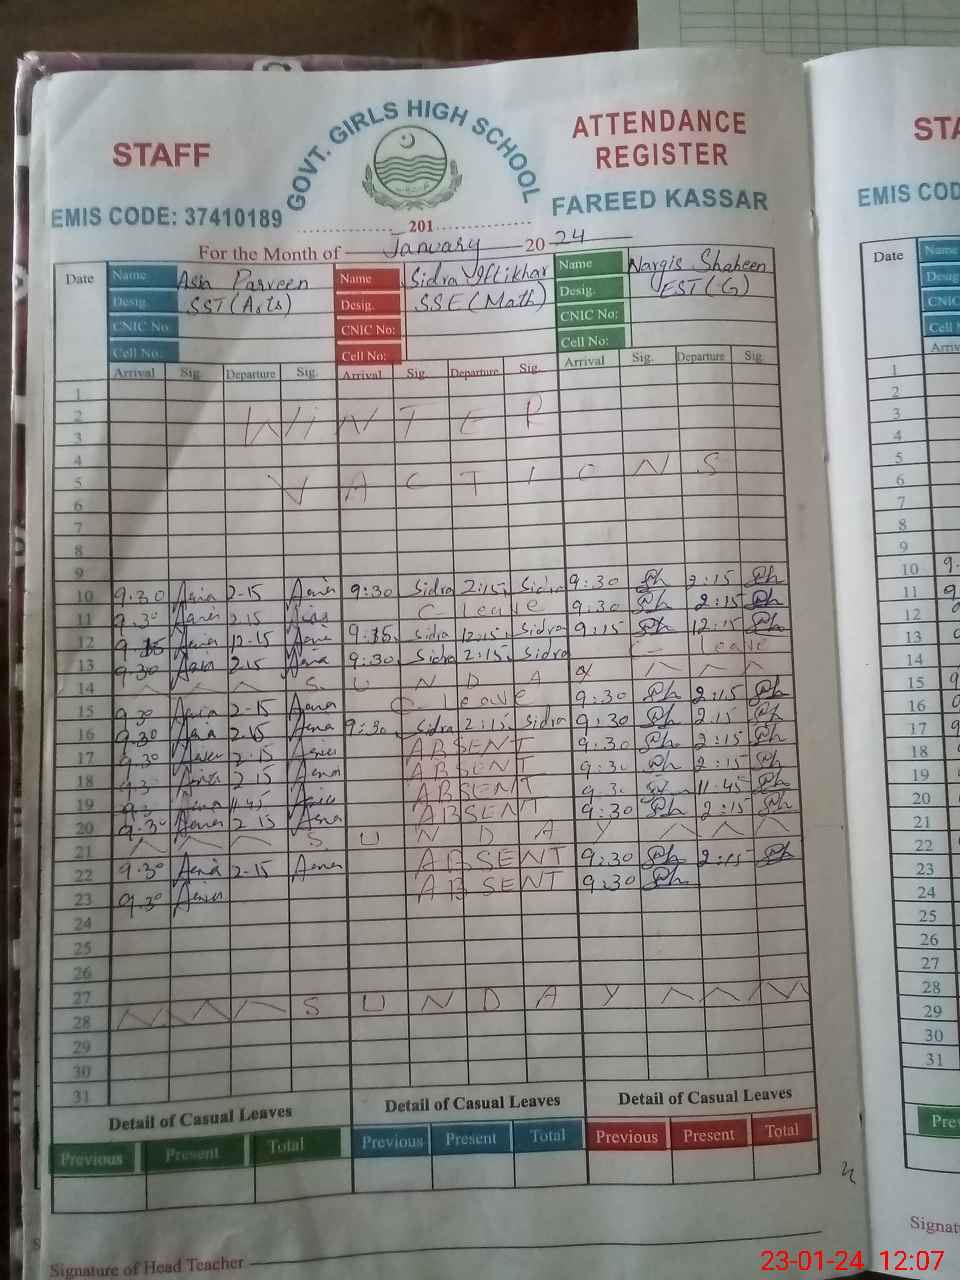 STAFF
GOVT. GIRLS HIGH SCHOOL
ATTENDANCE
REGISTER
EMIS CODE: 37410189
FAREED KASSAR
201
For the Month of January 20 24
Date Name Asia Parveen Name Sidra Iftikhar Name Nargis Shaheen
Desig. SST (Arts) Desig. SSE (Math) Desig. EST (G)
CNIC No: CNIC No: CNIC No:
Cell No: Cell No: Cell No:
Arrival Sig. Departure Sig. Arrival Sig. Departure Sig. Arrival Sig. Departure Sig.
1
2 WINTER
3
4
5 VACTIONS
6
7
8
9
10 9.30 Asia 2-15 Asia 9:30 Sidra 2:15 Sidra 9:30 Sh 2:15 Sh
11 9.30 Asia 2.15 Asia C-leave 9:30 Sh 2:15 Sh
12 9.15 Asia 12-15 Asia 9:15 Sidra 12:15 Sidra 9:15 Sh 12:15 Sh
13 9.30 Asia 2.15 Asia 9:30 Sidra 2:15 Sidra C- leave
14 SUNDAY
15 9.30 Asia 2-15 Asia C-leave 9:30 Sh 2:15 Sh
16 9.30 Asia 2.15 Asia 9:30 Sidra 2:15 Sidra 9:30 Sh 2:15 Sh
17 9.30 Asia 2.15 Asia ABSENT 9:30 Sh 2:15 Sh
18 9.3 Asia 2.15 Asia ABSENT 9:30 Sh 2:15 Sh
19 9.3 Asia 11.45 Asia ABSENT 9:30 11:45 Sh
20 9.30 Asia 2 15 Asia ABSENT 9:30 Sh 2:15 Sh
21 SUNDAY
22 9.30 Asia 2-15 Asia ABSENT 9:30 Sh 2:15 Sh
23 9.30 Asia ABSENT 9:30 Sh
24
25
26
27
28 SUNDAY
29
30
31
Detail of Casual Leaves Detail of Casual Leaves Detail of Casual Leaves
Previous Present Total Previous Present Total Previous Present Total
Signature of Head Teacher
STA
EMIS COD
Date Name
Desig
CNIC
Cell
Arriv
1
2
3
4
5
6
7
8
9
10 9.
11 9
12
13
14
15
16
17
18
19
20
21
22
23
24
25
26
27
28
29
30
31
Prev
Signat
23-01-24 12:07